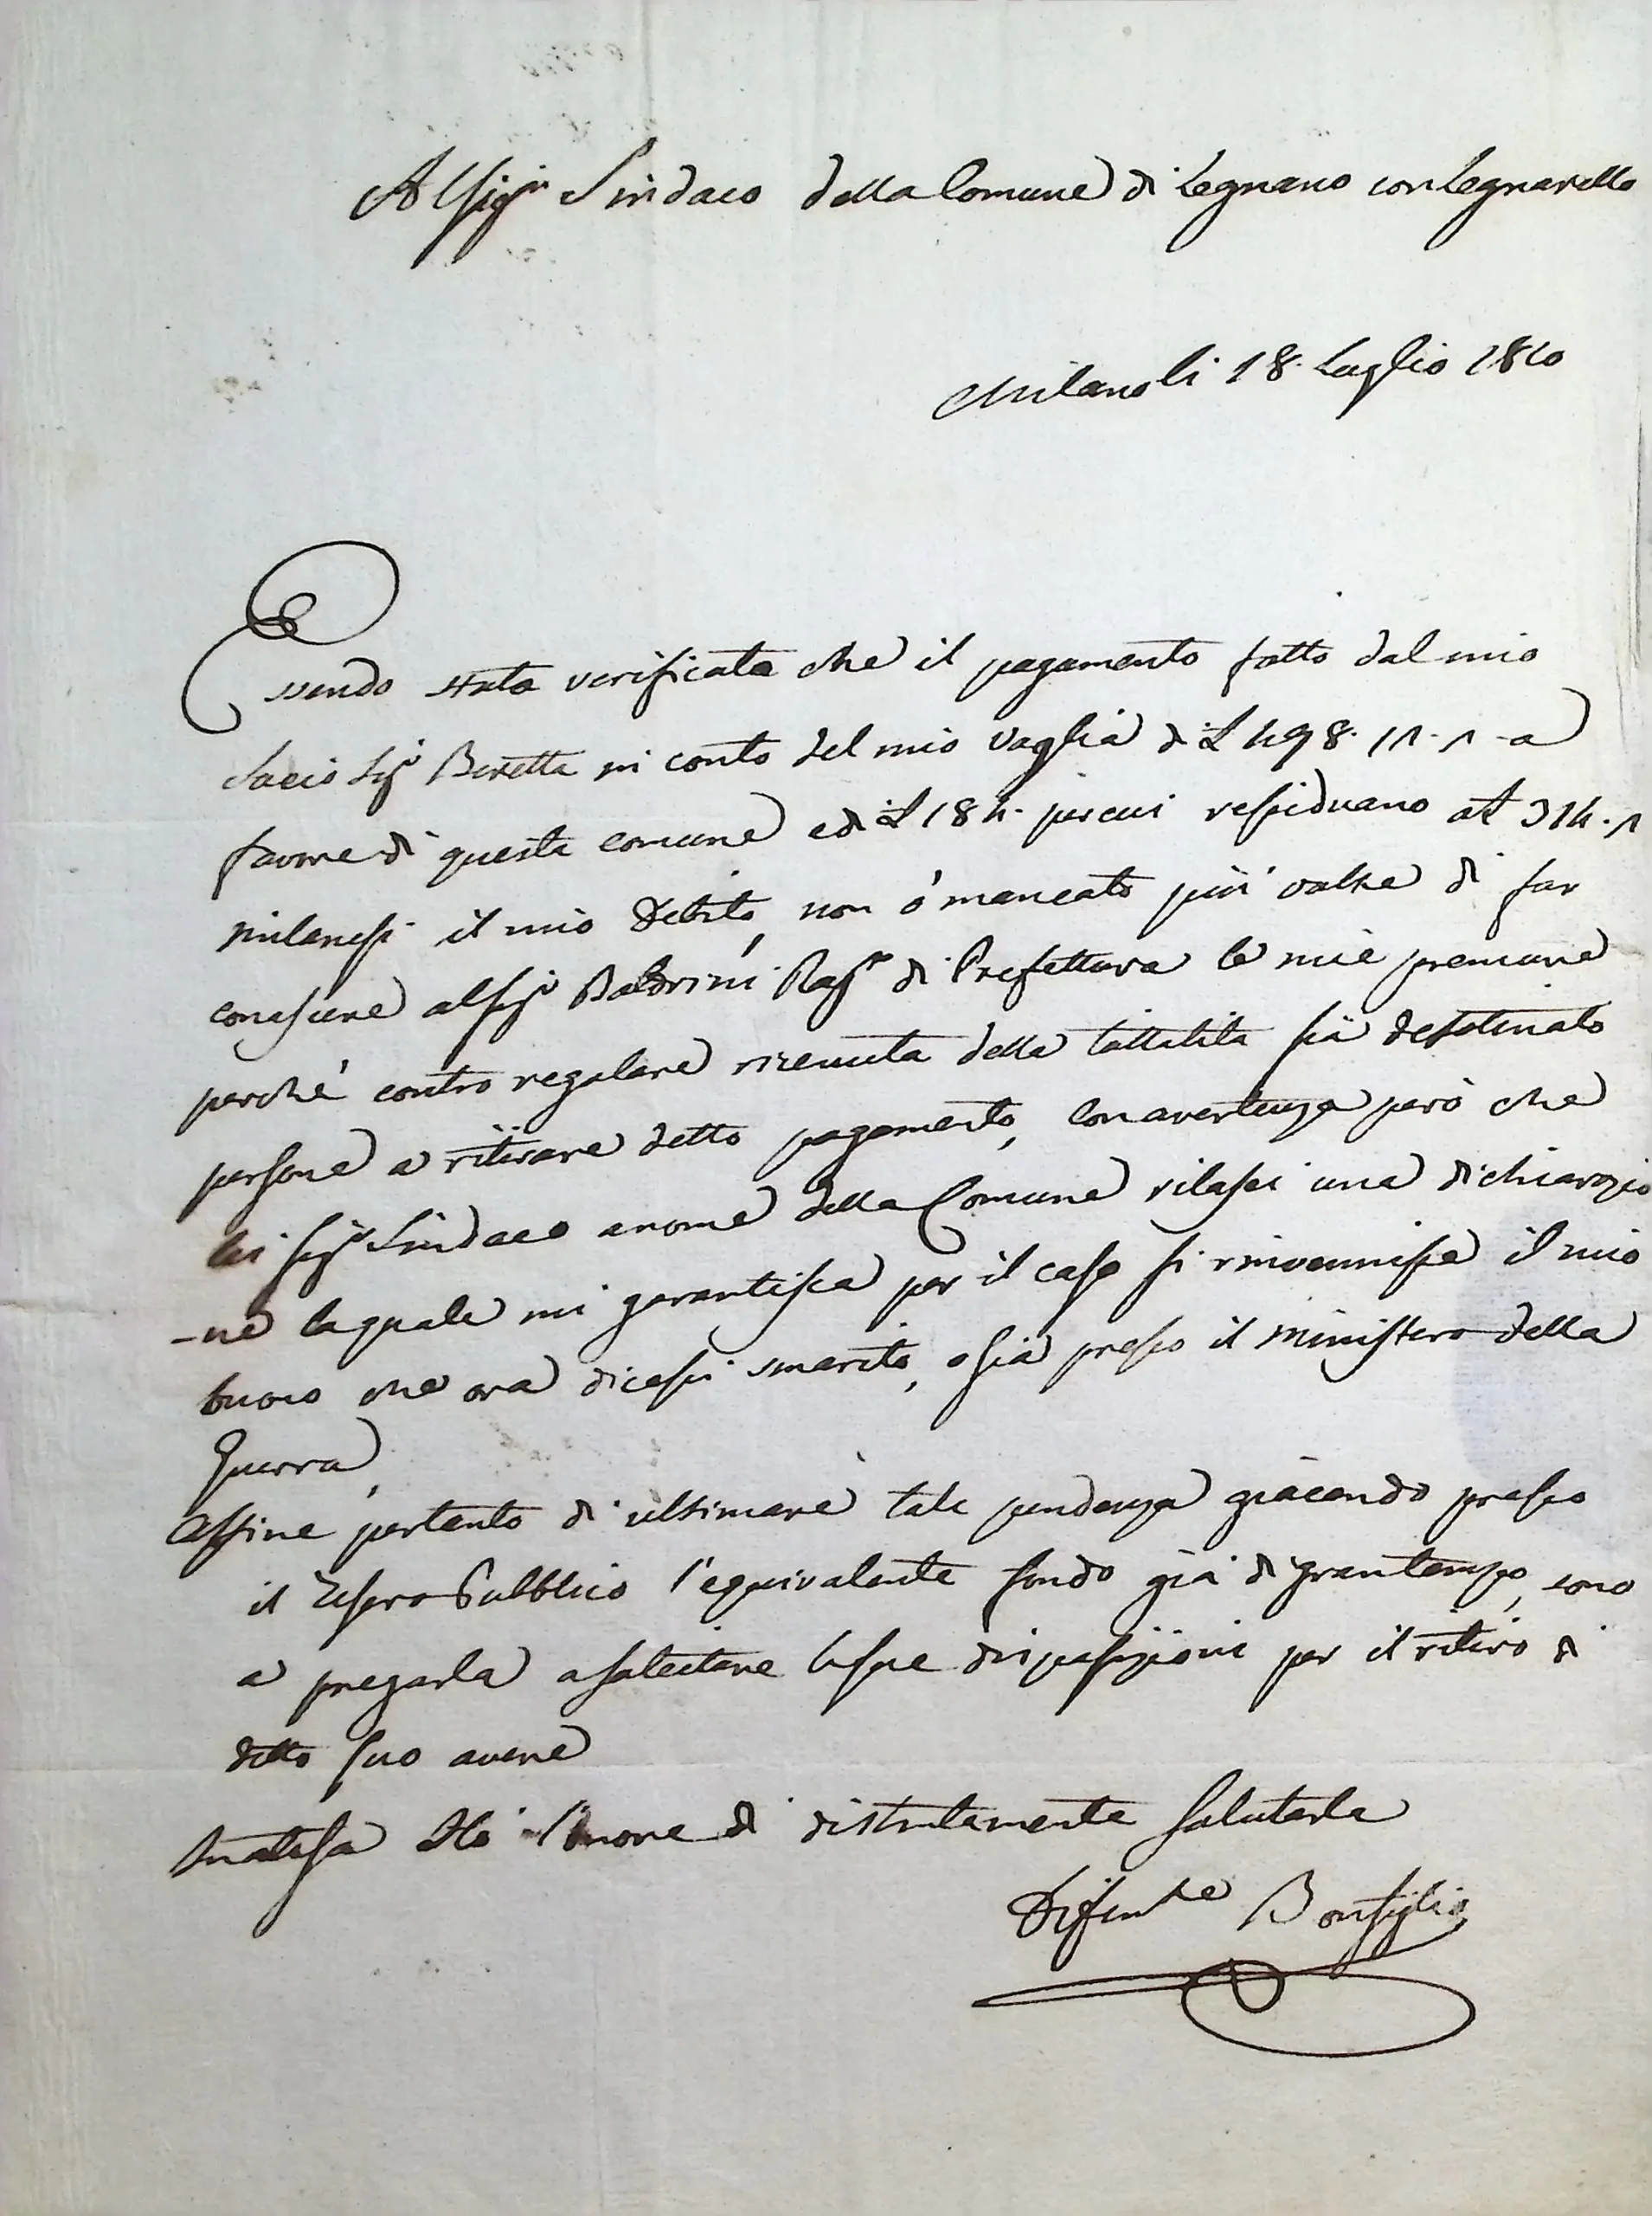 Al Sig.r Sindaco della Comune di Legnano con Legnarello
Milano li 18. Luglio 1810
Essendo stata verificata che il pagamento fatto dal mio
Socio Sig.r Beretta in conto del mio vaglia di L 498. 11. 1 a
favore di questa comune e di L 184. per cui ressiduano a L 314. 1
milanesi il mio Debito, non ò mancato più volte di far
conossere al Sig.r Baldrini Rag.to di Prefettura le mie premure
perchè contro regolare riceuuta della tottalita sia desstinato
persona a ritirare detto pagamento, con avertenza però che
lei Sig.r Sindaco a nome della Comune rilasci una dichiarazio
-ne la quale mi garantisca per il caso si rinvennisse il mio
buono che ora dicessi smarito, o sia presso il Ministero della
Guerra,
Affine pertanto di ultimare tale pendenza giacendo presso
il Tesoro Pubblico l'equivalente fondo già di gran tempo, sono
a pregarla a soleitare le sue disposizioni per il ritiro di
detto suo avere
In attesa Hò l'onore di distintamente salutarla
Difend.te Bonfiglio